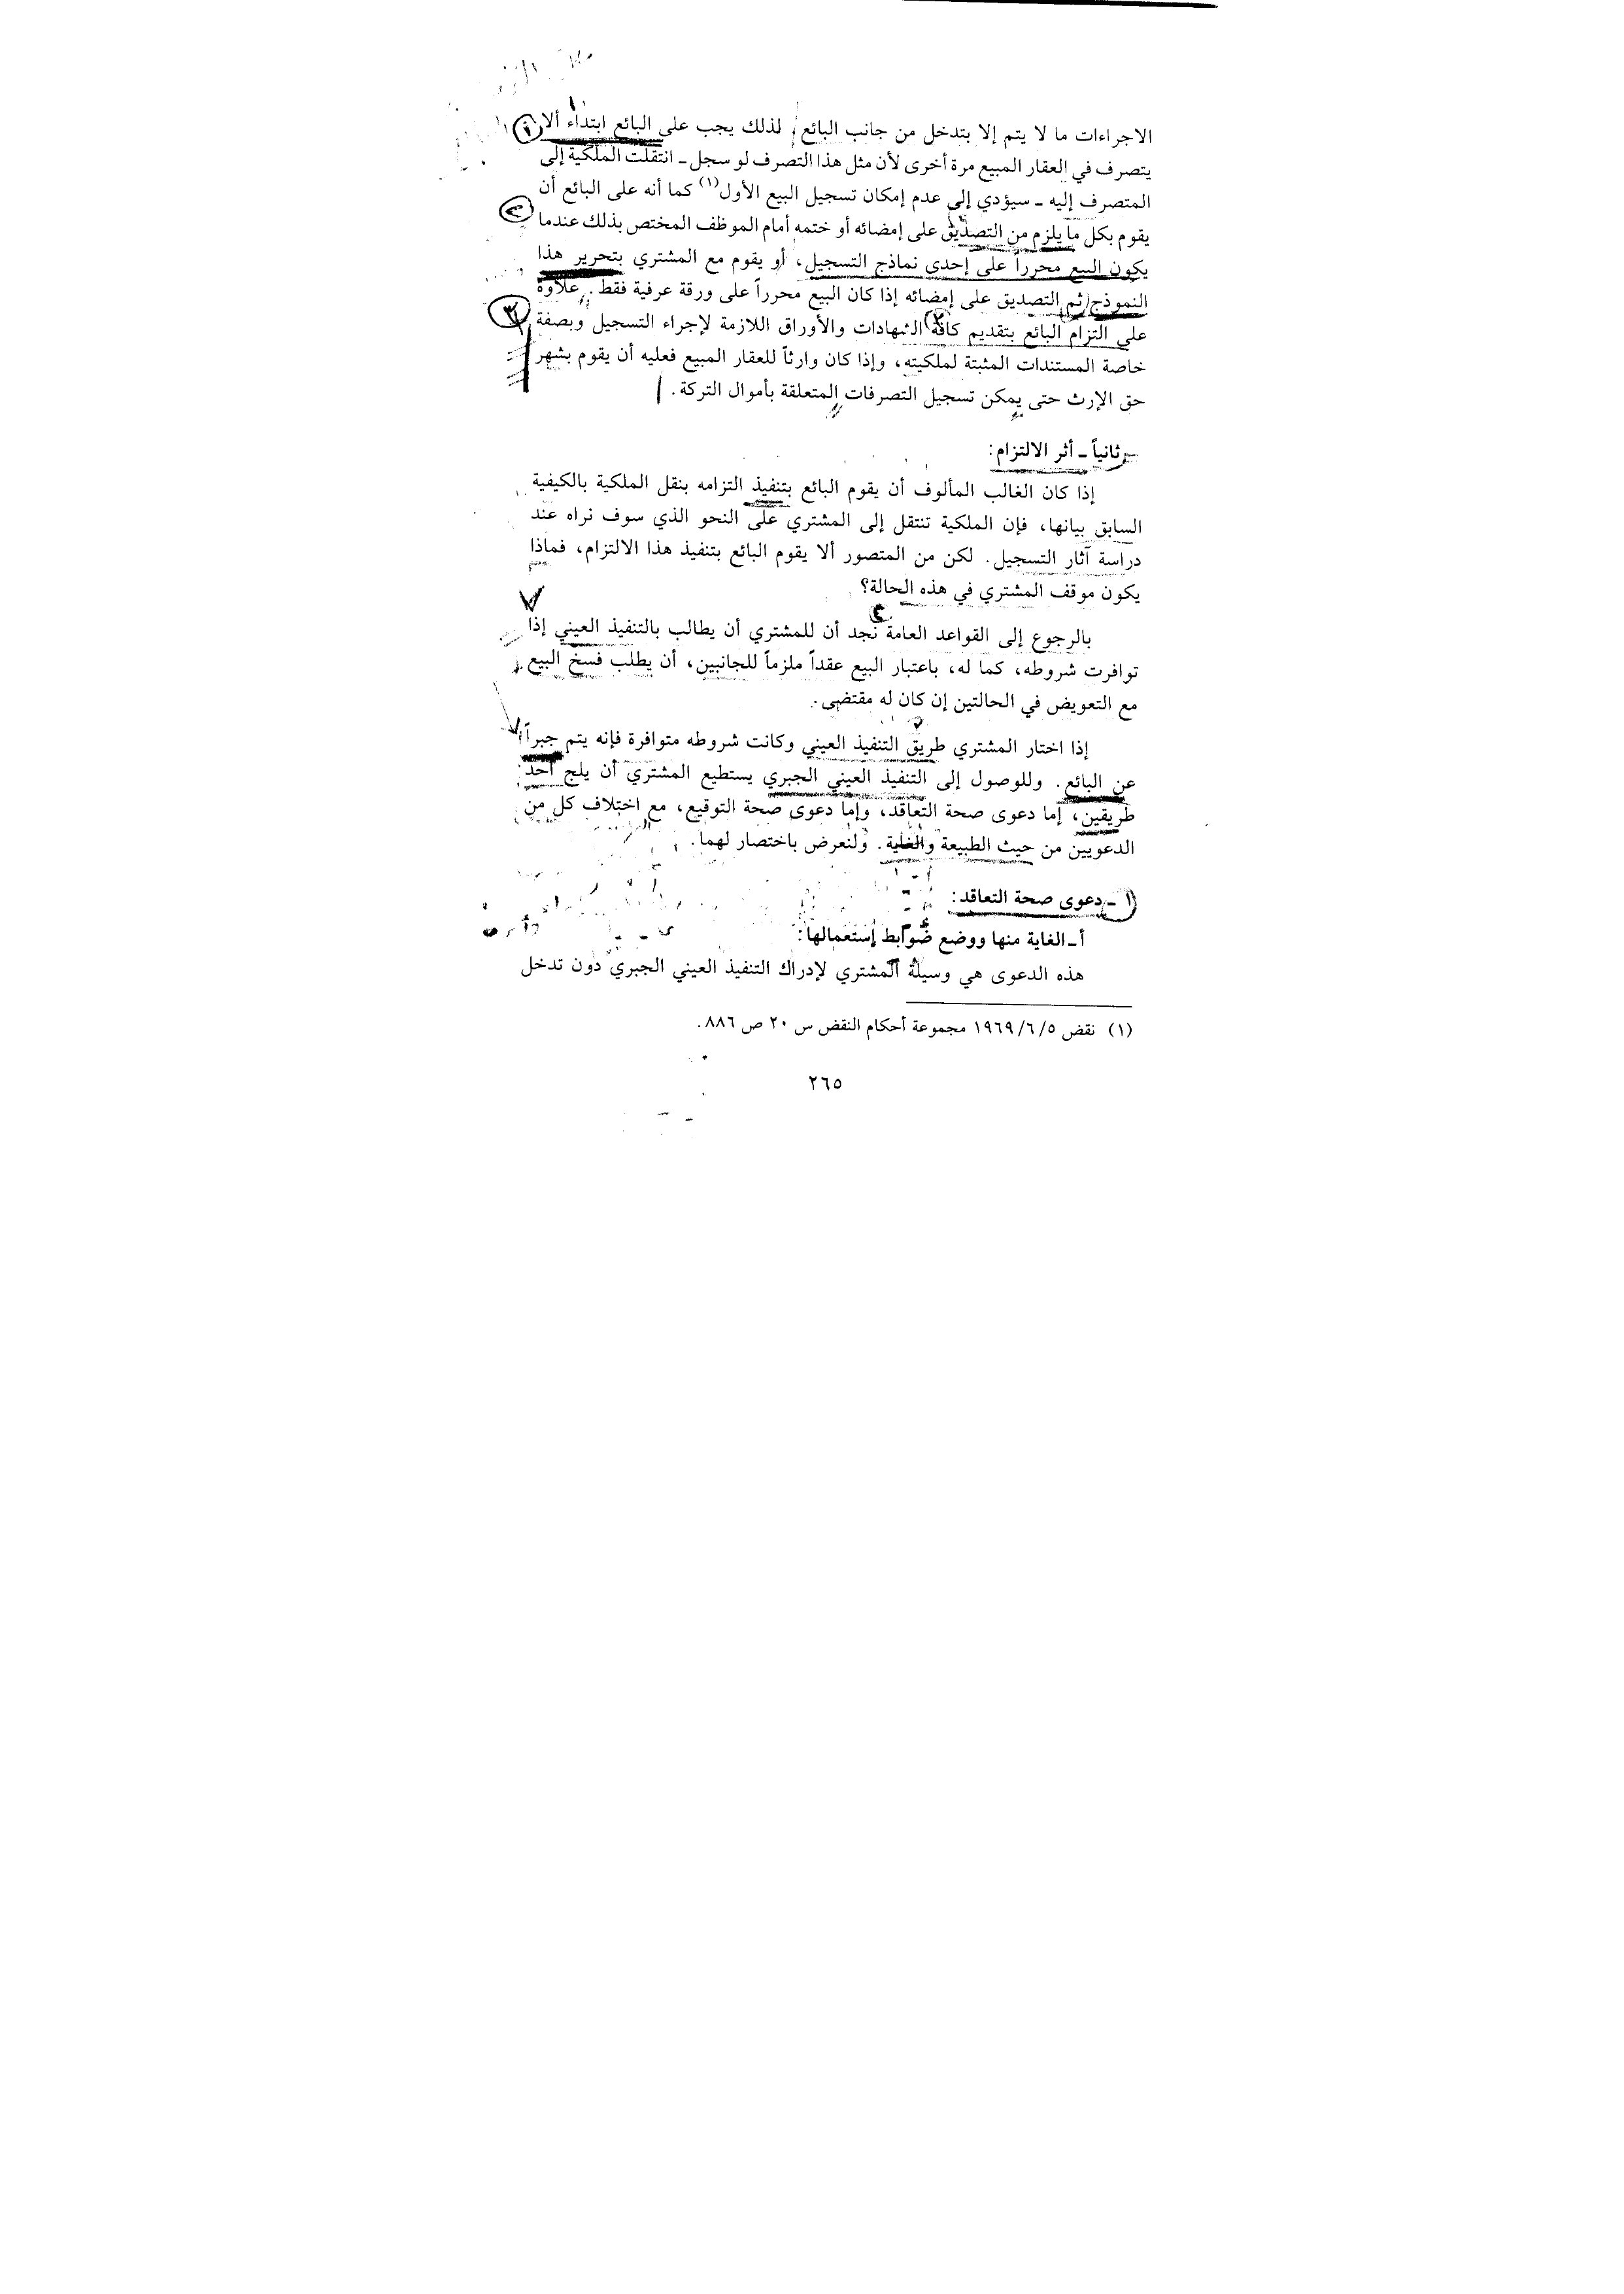 الاجراءات ما لا يتم إلا بتدخل من جانب البائع، لذلك يجب على البائع ابتداء ألا
يتصرف في العقار المبيع مرة أخرى لأن مثل هذا التصرف لو سجل ـ انتقلت الملكية إلى
المتصرف إليه ـ سيؤدي إلى عدم إمكان تسجيل البيع الأول(١) كما أنه على البائع أن
يقوم بكل ما يلزم من التصديق على إمضائه أو ختمه أمام الموظف المختص بذلك عندما
يكون البيع محرراً على إحدى نماذج التسجيل، أو يقوم مع المشتري بتحرير هذا
النموذج ثم التصديق على إمضائه إذا كان البيع محرراً على ورقة عرفية فقط. علاوة
على التزام البائع بتقديم كافة الشهادات والأوراق اللازمة لإجراء التسجيل وبصفة
خاصة المستندات المثبتة لملكيته، وإذا كان وارثاً للعقار المبيع فعليه أن يقوم بشهر
حق الإرث حتى يمكن تسجيل التصرفات المتعلقة بأموال التركة.
ثانياً ـ أثر الالتزام:
إذا كان الغالب المألوف أن يقوم البائع بتنفيذ التزامه بنقل الملكية بالكيفية
السابق بيانها، فإن الملكية تنتقل إلى المشتري على النحو الذي سوف نراه عند
دراسة آثار التسجيل. لكن من المتصور ألا يقوم البائع بتنفيذ هذا الالتزام، فماذا
يكون موقف المشتري في هذه الحالة؟
بالرجوع إلى القواعد العامة نجد أن للمشتري أن يطالب بالتنفيذ العيني إذا
توافرت شروطه، كما له، باعتبار البيع عقداً ملزماً للجانبين، أن يطلب فسخ البيع
مع التعويض في الحالتين إن كان له مقتضى.
إذا اختار المشتري طريق التنفيذ العيني وكانت شروطه متوافرة فإنه يتم جبراً
عن البائع. وللوصول إلى التنفيذ العيني الجبري يستطيع المشتري أن يلج أحد
طريقين، إما دعوى صحة التعاقد، وإما دعوى صحة التوقيع، مع اختلاف كل من
الدعويين من حيث الطبيعة والغاية. ولنعرض باختصار لهما.
١ ـ دعوى صحة التعاقد:
أ ـ الغاية منها ووضع ضوابط إستعمالها:
هذه الدعوى هي وسيلة المشتري لإدراك التنفيذ العيني الجبري دون تدخل
(١) نقض ١٩٦٩/٦/٥ مجموعة أحكام النقض س ٢٠ ص ٨٨٦.
٢٦٥